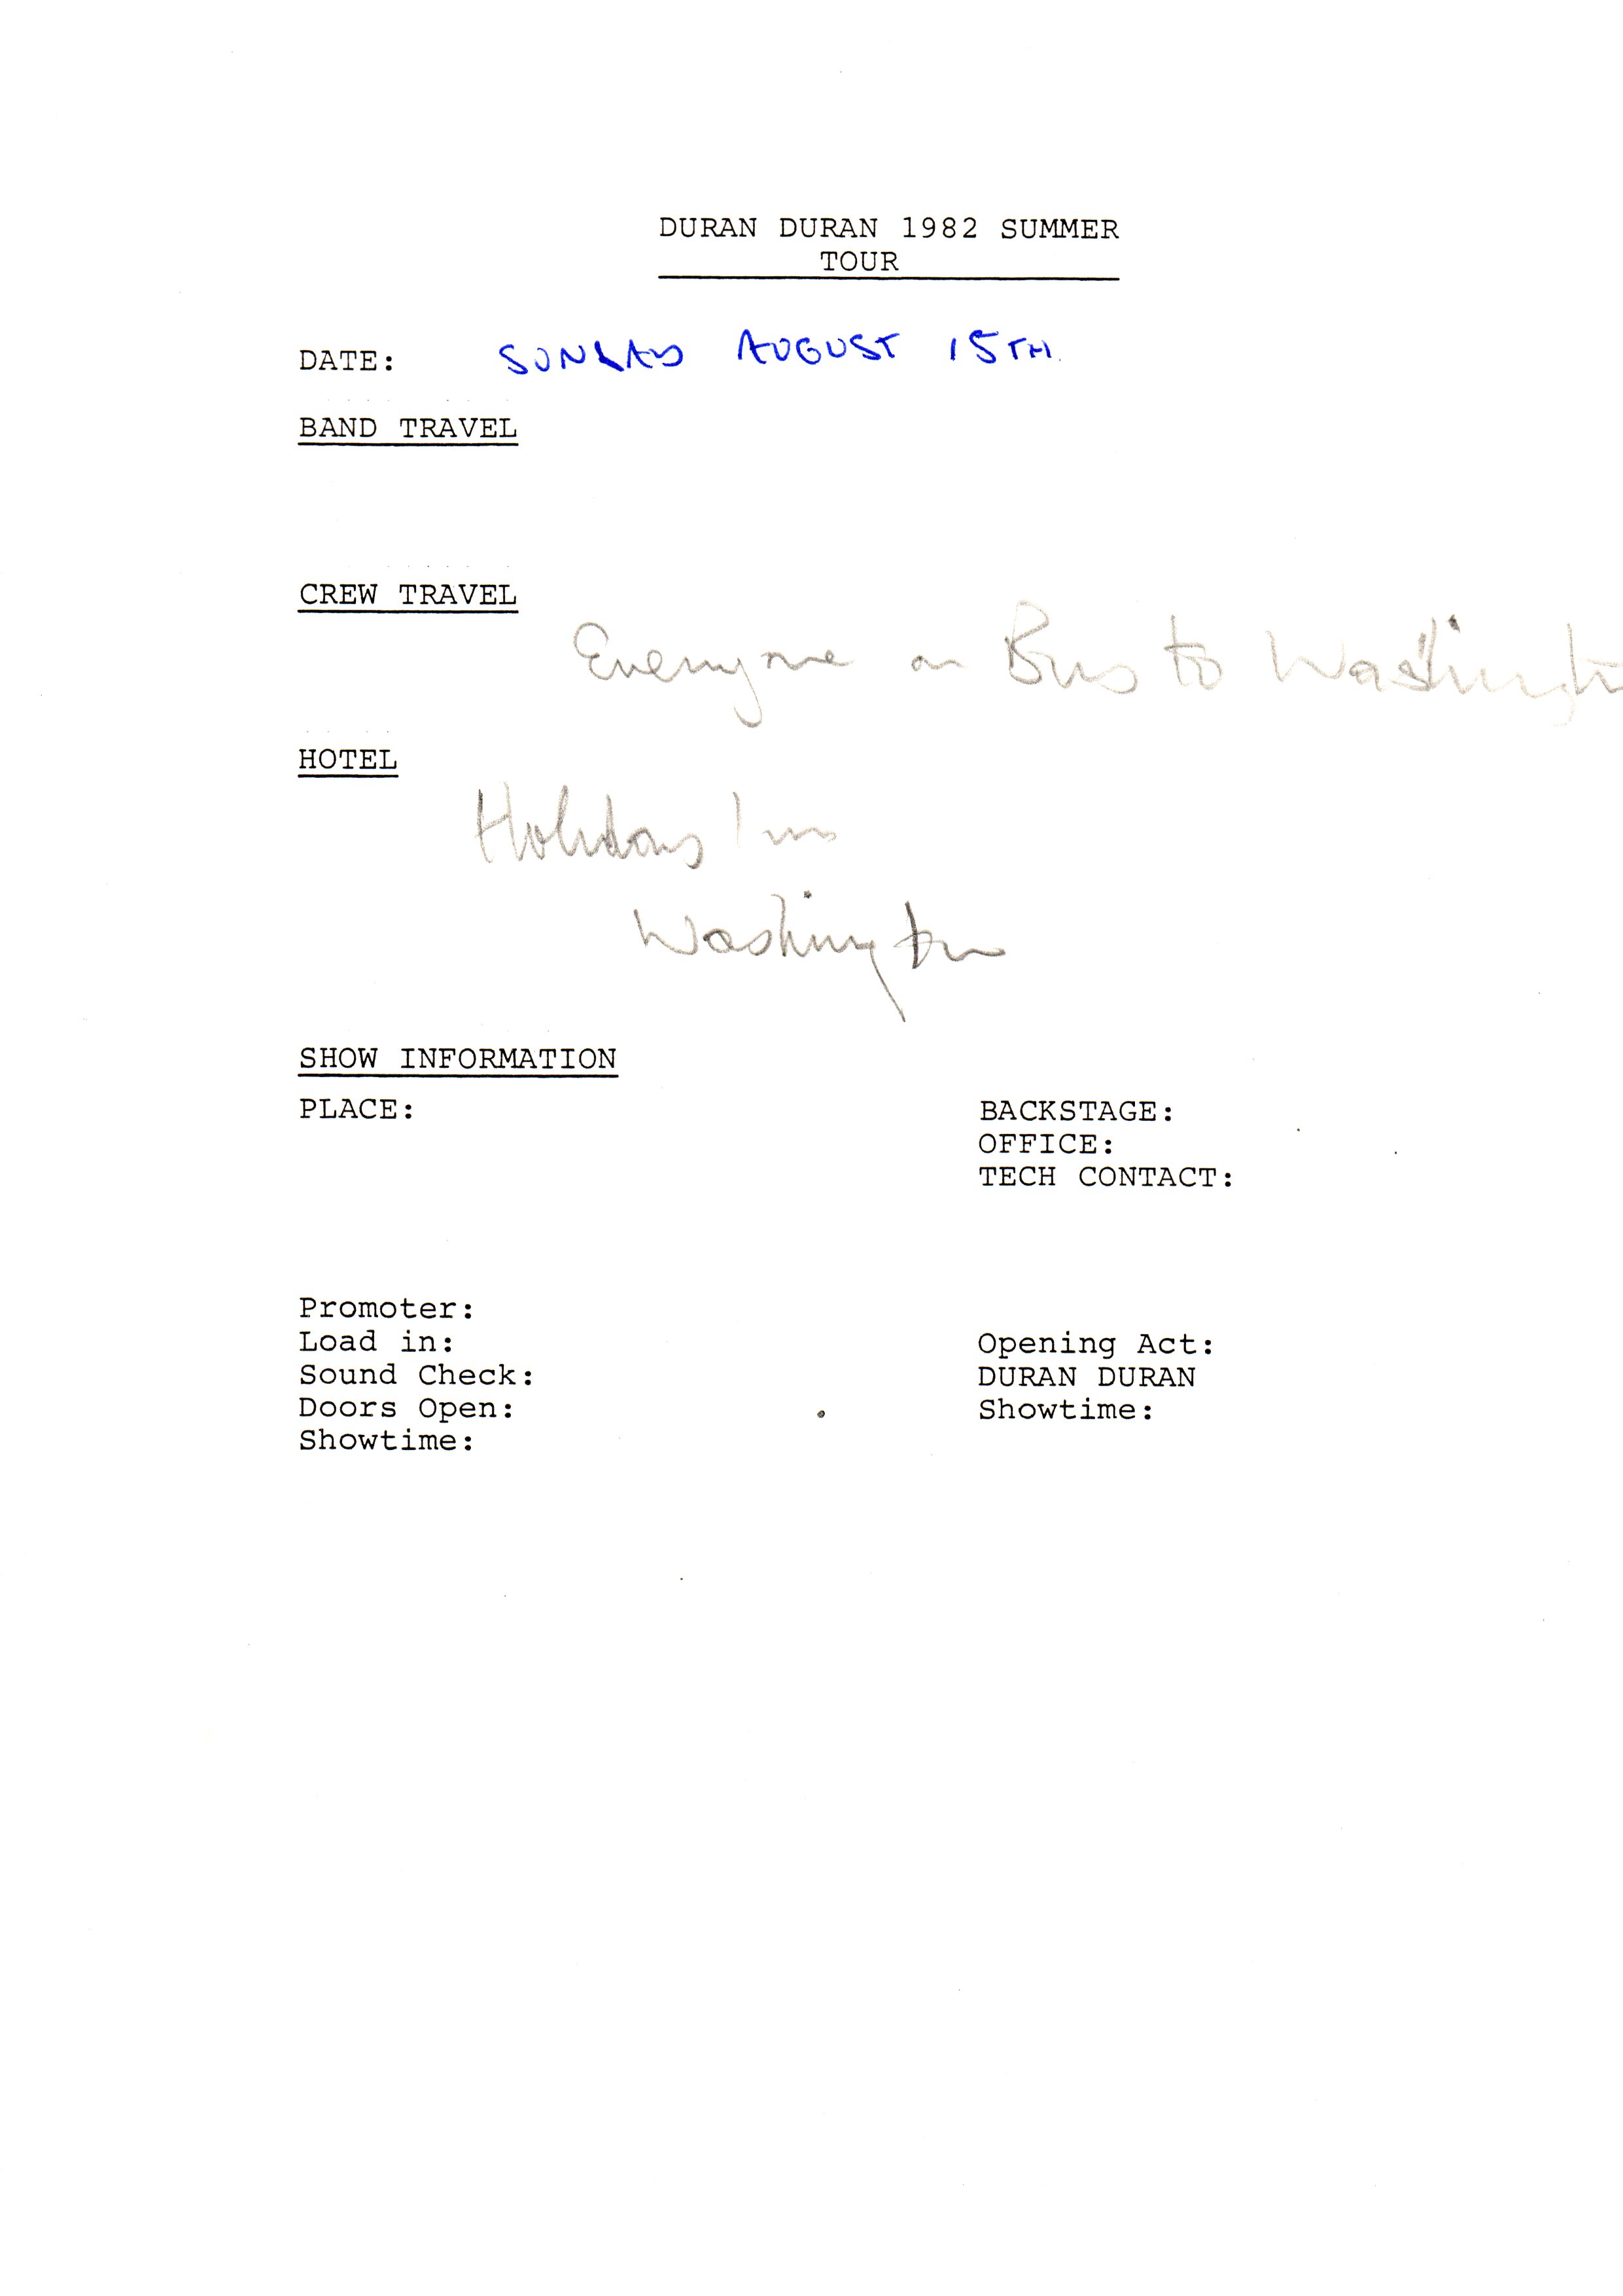 DURAN DURAN 1982 SUMMER
TOUR
DATE: SUNDAY AUGUST 15TH
BAND TRAVEL
CREW TRAVEL
Everyone on Bus to Washingto
HOTEL
Holiday Inn
Washington
SHOW INFORMATION
PLACE:
BACKSTAGE:
OFFICE:
TECH CONTACT:
Promoter:
Load in:
Sound Check:
Doors Open:
Showtime:
Opening Act:
DURAN DURAN
Showtime: